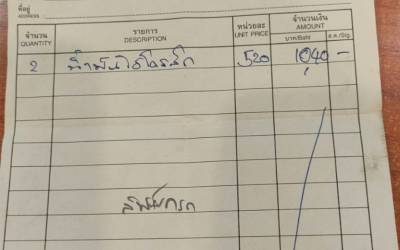 ที่อยู่
ADDRESS
จำนวน
QUANTITY
รายการ
DESCRIPTION
หน่วยละ
UNIT PRICE
จำนวนเงิน
AMOUNT
บาท/Baht
ส.ต./Stg.
2 น้ำมันไฮดรอลิก 520 1040 -